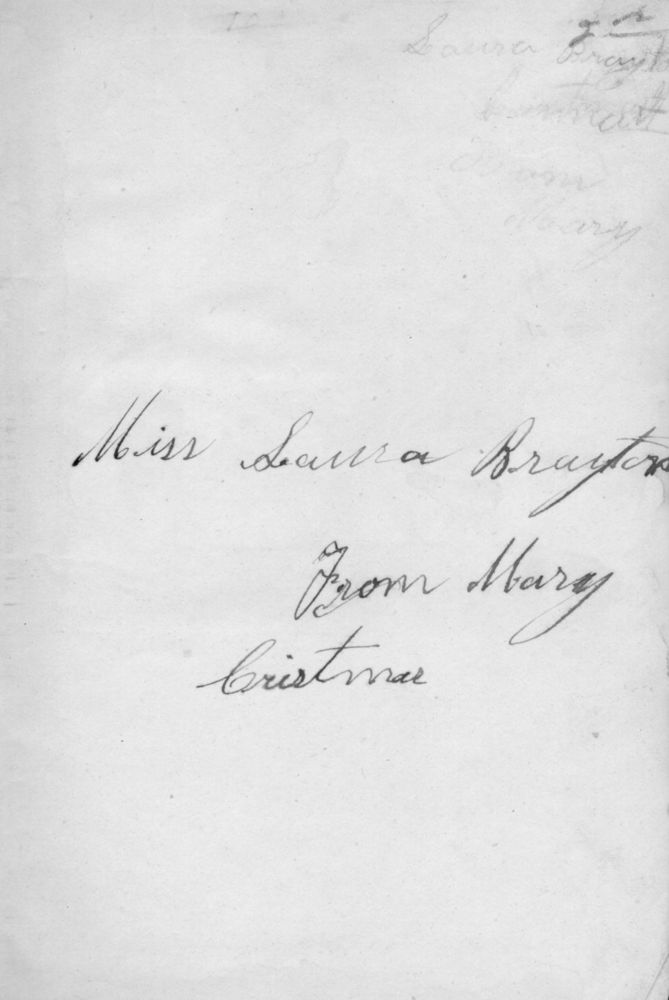 Laura Brayt
From
Mary
Miss Laura Brayton
From Mary
Cristmas